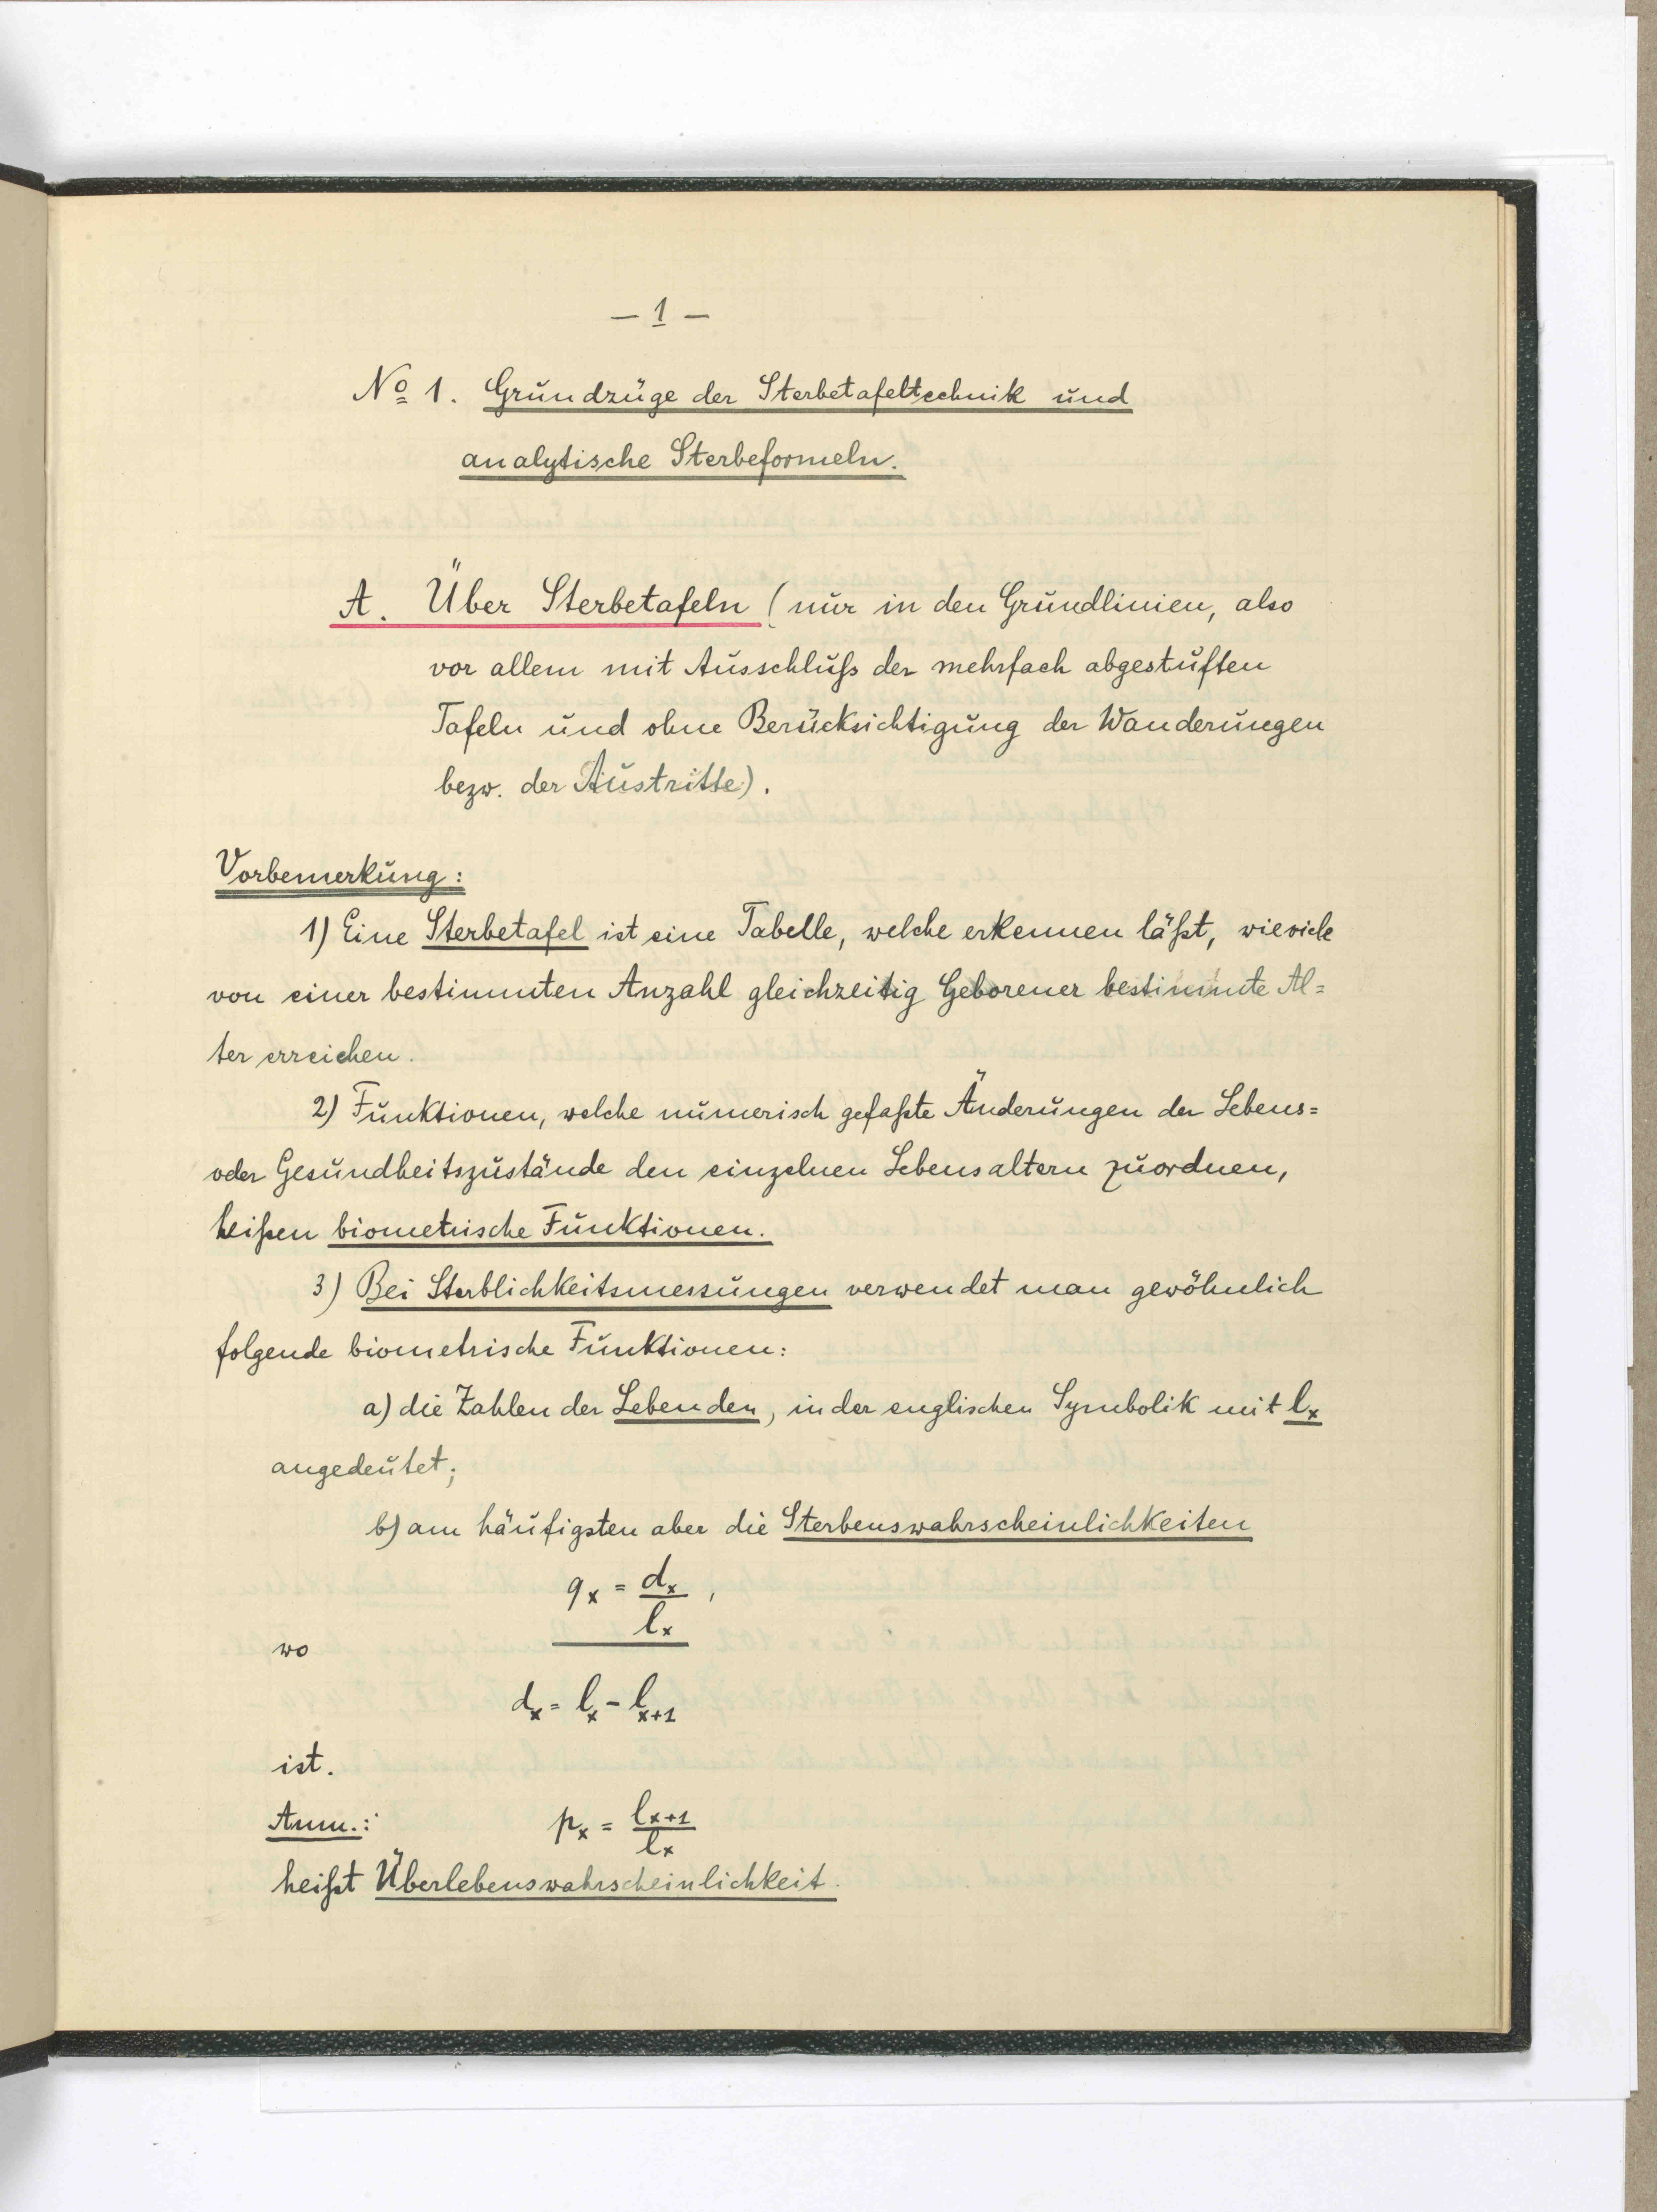 — 1 —
No 1. Grundzüge der Sterbetafeltechnik und
analytische Sterbeformeln.
A. Über Sterbetafeln (nur in den Grundlinien, also
vor allem mit Ausschluß der mehrfach abgestuften
Tafeln und ohne Berücksichtigung der Wanderungen
bezw. der Austritte).
Vorbemerkung:
1) Eine Sterbetafel ist eine Tabelle, welche erkennen läßt, wieviele
von einer bestimmten Anzahl gleichzeitig Geborener bestimmte Al=
ter erreichen.
2) Funktionen, welche numerisch gefaßte Änderungen der Lebens=
oder Gesundheitszustände den einzelnen Lebensaltern zuordnen,
heißen biometrische Funktionen.
3) Bei Sterblichkeitsmessungen verwendet man gewöhnlich
folgende biometrische Funktionen:
a) die Zahlen der Lebenden, in der englischen Symbolik mit lₓ
angedeutet;
b) am häufigsten aber die Sterbenswahrscheinlichkeiten
qₓ = dₓ / lₓ ,
wo
dₓ = lₓ - lₓ₊₁
ist.
Anm.: pₓ = lₓ₊₁ / lₓ
heißt Überlebenswahrscheinlichkeit.